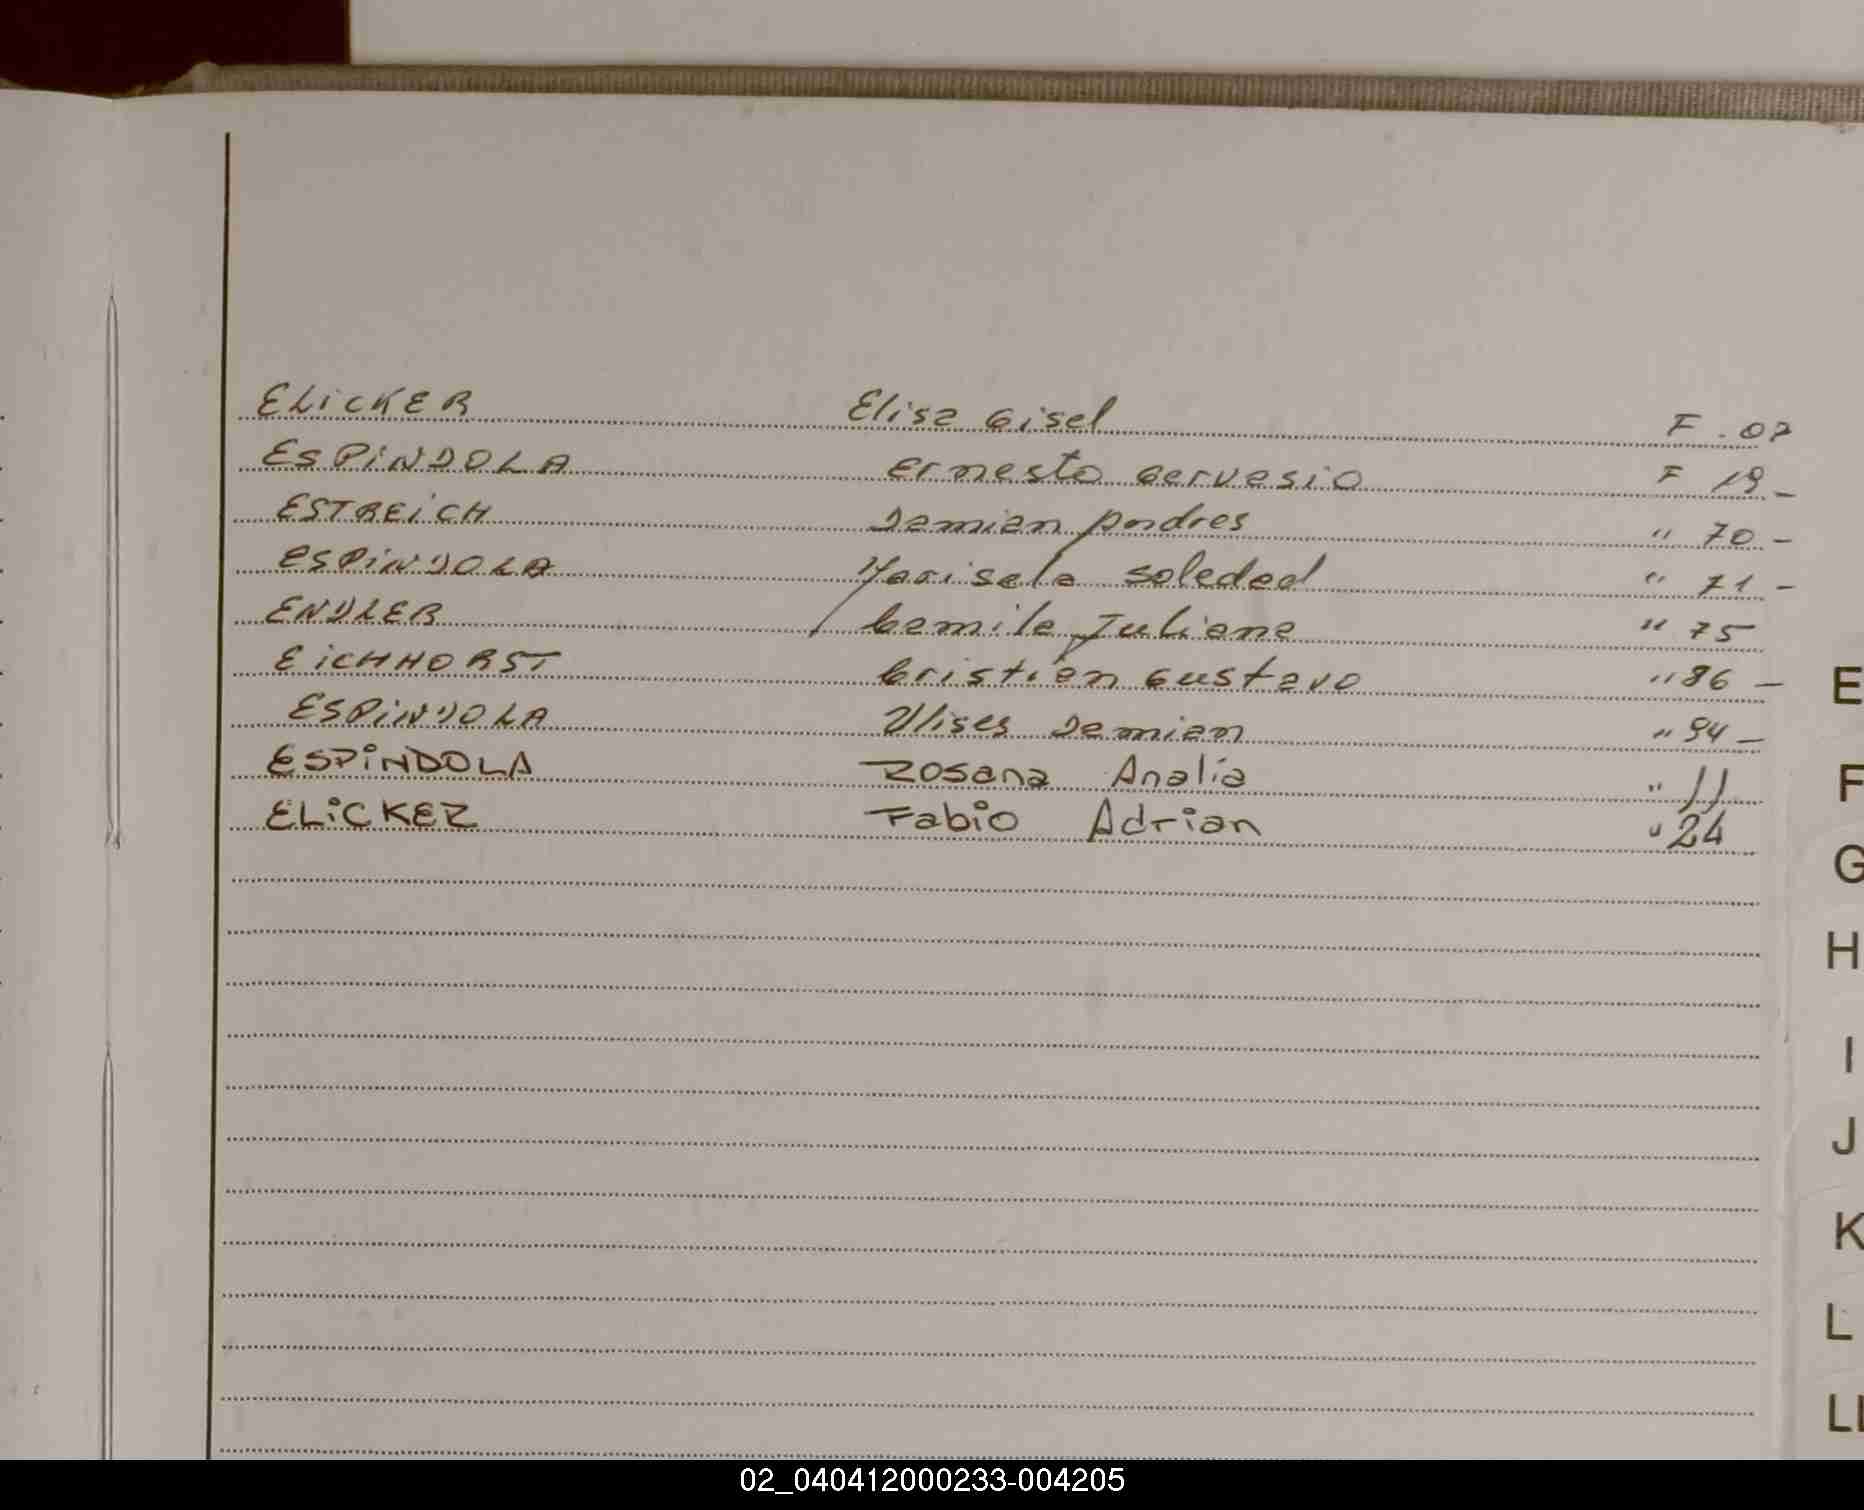 ELiCKER Elisa Gisel F. 07
ESPiNDOLA Ernesto Gervasio F 19 -
ESTREiCH Damian Andres " 70 -
ESPiNDOLA Marisela Soledad " 71 -
ENDLER Camila Juliana " 75
EiCHHORST Cristian Gustavo " 86 -
ESPiNDOLA Ulises Damian " 94 -
ESPiNDOLA Rosana Analia " 11
ELiCKER Fabio Adrian " 24
E
F
G
H
I
J
K
L
LL
02_040412000233-004205